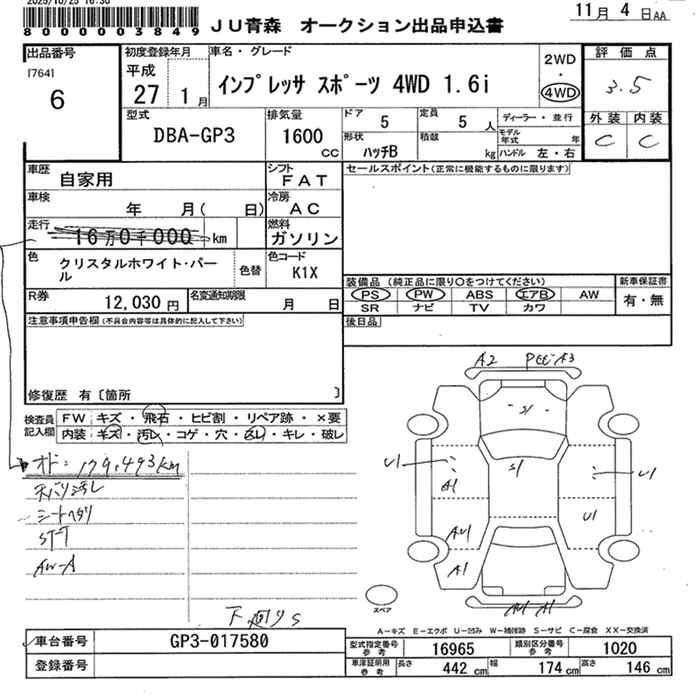 2025/10/25 16:30
8000003849
JU青森 オークション出品申込書
11月 4日AA
出品番号
[764]
6
初度登録年月
平成
27 1月
車名・グレード
インプレッサ スポーツ 4WD 1.6i
2WD
・
4WD
評価点
3.5
外装 内装
C C
型式
DBA-GP3
排気量
1600
cc
ドア
5
定員
5人
形状
ハッチB
積載
kg
ディーラー・並行
モデル年式 年
ハンドル 左・右
車歴
自家用
シフト
FAT
セールスポイント(正常に機能するものに限ります)
車検
年 月( 日)
冷房
AC
走行
16万0千000km
燃料
ガソリン
色
クリスタルホワイト・パール
色替
色コード
K1X
R券
12,030円
名変通知期限
月 日
装備品 (純正品に限り○をつけてください)
PS PW ABS エアB AW
SR ナビ TV カワ
新車保証書
有・無
注意事項申告欄(不具合内容等は具体的に記入して下さい)
後日品
修復歴 有〔箇所 〕
検査員記入欄
FW キズ・飛石・ヒビ割・リペア跡・×要
内装 キズ・汚レ・コゲ・穴・凹レ・キレ・破レ
オド:179,493km
天バリ汚レ
シートヘタリ
ST-T
AW-A
下廻りS
A2 Pセニ A3
S1
S1
U1
A1
U1
U1
AU1
A1
AU1 A1
スペア
A-キズ E-エクボ U-凹み W-補修跡 S-サビ C-腐食 XX-交換済
車台番号
GP3-017580
登録番号
型式指定番号
参考
16965
類別区分番号
参考
1020
車検証明用
参考
長さ
442 cm
幅
174 cm
高さ
146 cm